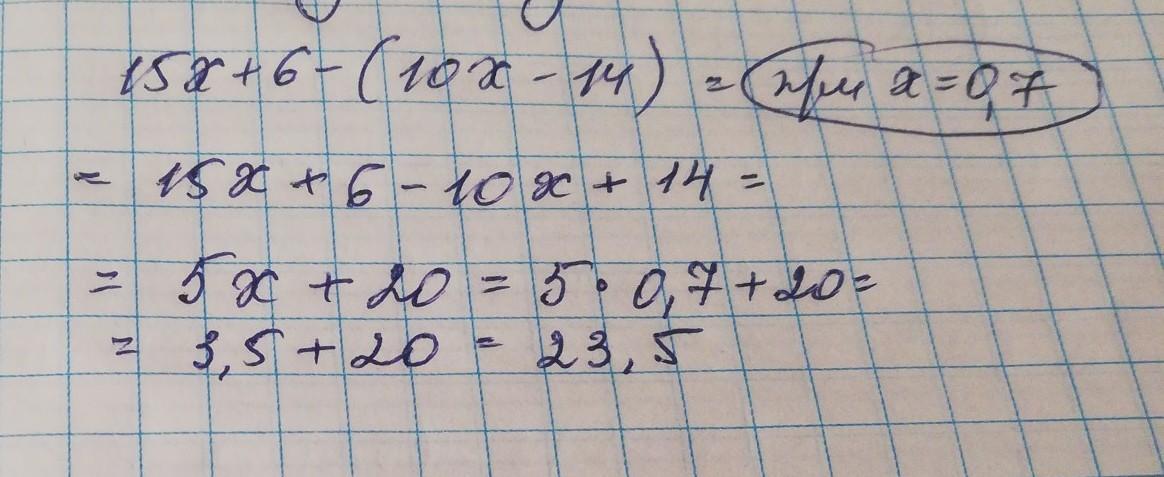 15x + 6 - (10x - 14) = при x = 0,7
= 15x + 6 - 10x + 14 =
= 5x + 20 = 5 · 0,7 + 20 =
= 3,5 + 20 = 23,5